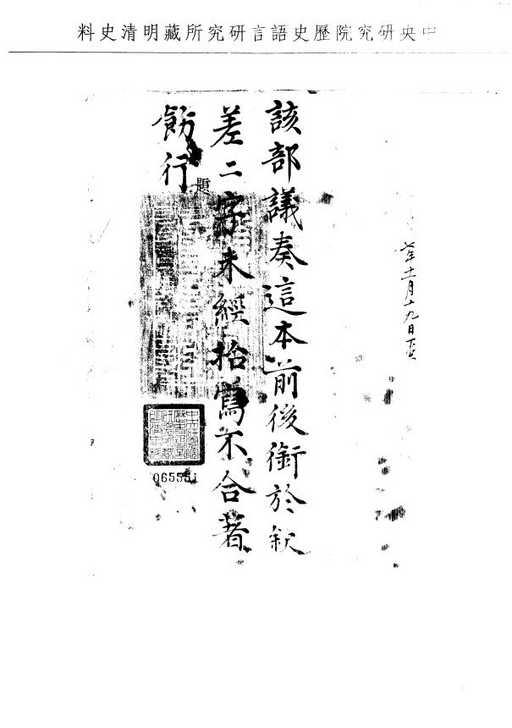 中央研究院歷史語言研究所藏明清史料
該部議奏這本前後銜於欽
差二字未經抬寫不合著
飭行
題
065551